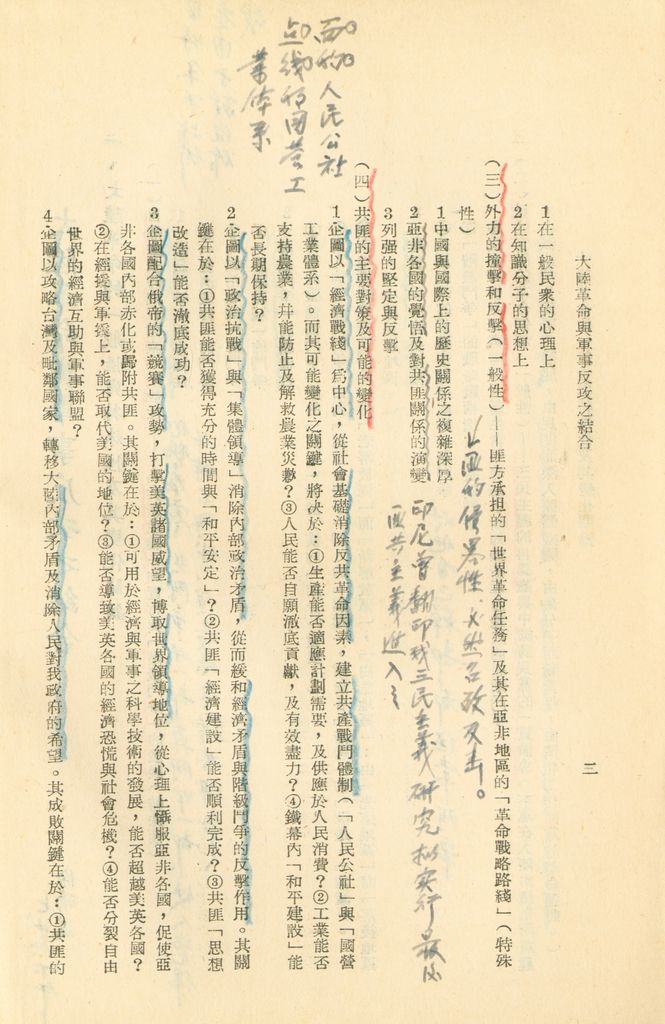 大陸革命與軍事反攻之結合
三
1在一般民衆的心理上
2在知識分子的思想上
（三）外力的撞擊和反擊（一般性）——匪方承担的「世界革命任務」及其在亞非地區的「革命戰略路綫」（特殊
性）
1中國與國際上的歷史關係之複雜深厚
2亞非各國的覺悟及對共匪關係的演變
3列强的堅定與反擊
（四）共匪的主要對策及可能的變化
1企圖以「經濟戰綫」爲中心，從社會基礎消除反共革命因素，建立共產戰鬥體制（「人民公社」與「國營
工業體系）。而其可能變化之關鍵，將决於：①生產能否適應計劃需要，及供應於人民消費？②工業能否
支持農業，并能防止及解救農業災歉？③人民能否自願澈底貢獻，及有效盡力？④鐵幕內「和平建設」能
否長期保持？
2企圖以「政治抗戰」與「集體領導」消除內部政治矛盾，從而緩和經濟矛盾與階級鬥爭的反擊作用。其關
鍵在於：①共匪能否獲得充分的時間與「和平安定」？②共匪「經濟建設」能否順利完成？③共匪「思想
改造」能否澈底成功？
3企圖配合俄帝的「競賽」攻勢，打擊美英諸國威望，博取世界領導地位，從心理上懾服亞非各國，促使亞
非各國內部赤化或歸附共匪。其關鍵在於：①可用於經濟與軍事之科學技術的發展，能否超越美英各國？
②在經援與軍援上，能否取代美國的地位？③能否導致美英各國的經濟恐慌與社會危機？④能否分裂自由
世界的經濟互助與軍事聯盟？
4企圖以攻略台灣及毗鄰國家，轉移大陸內部矛盾及消除人民對我政府的希望。其成敗關鍵在於：①共匪的
面的人民公社
点线的国营工
業体系
的侵畧性 必然召致反击。
印尼曾翻印我三民主義研究 拟实行 最
主義進入